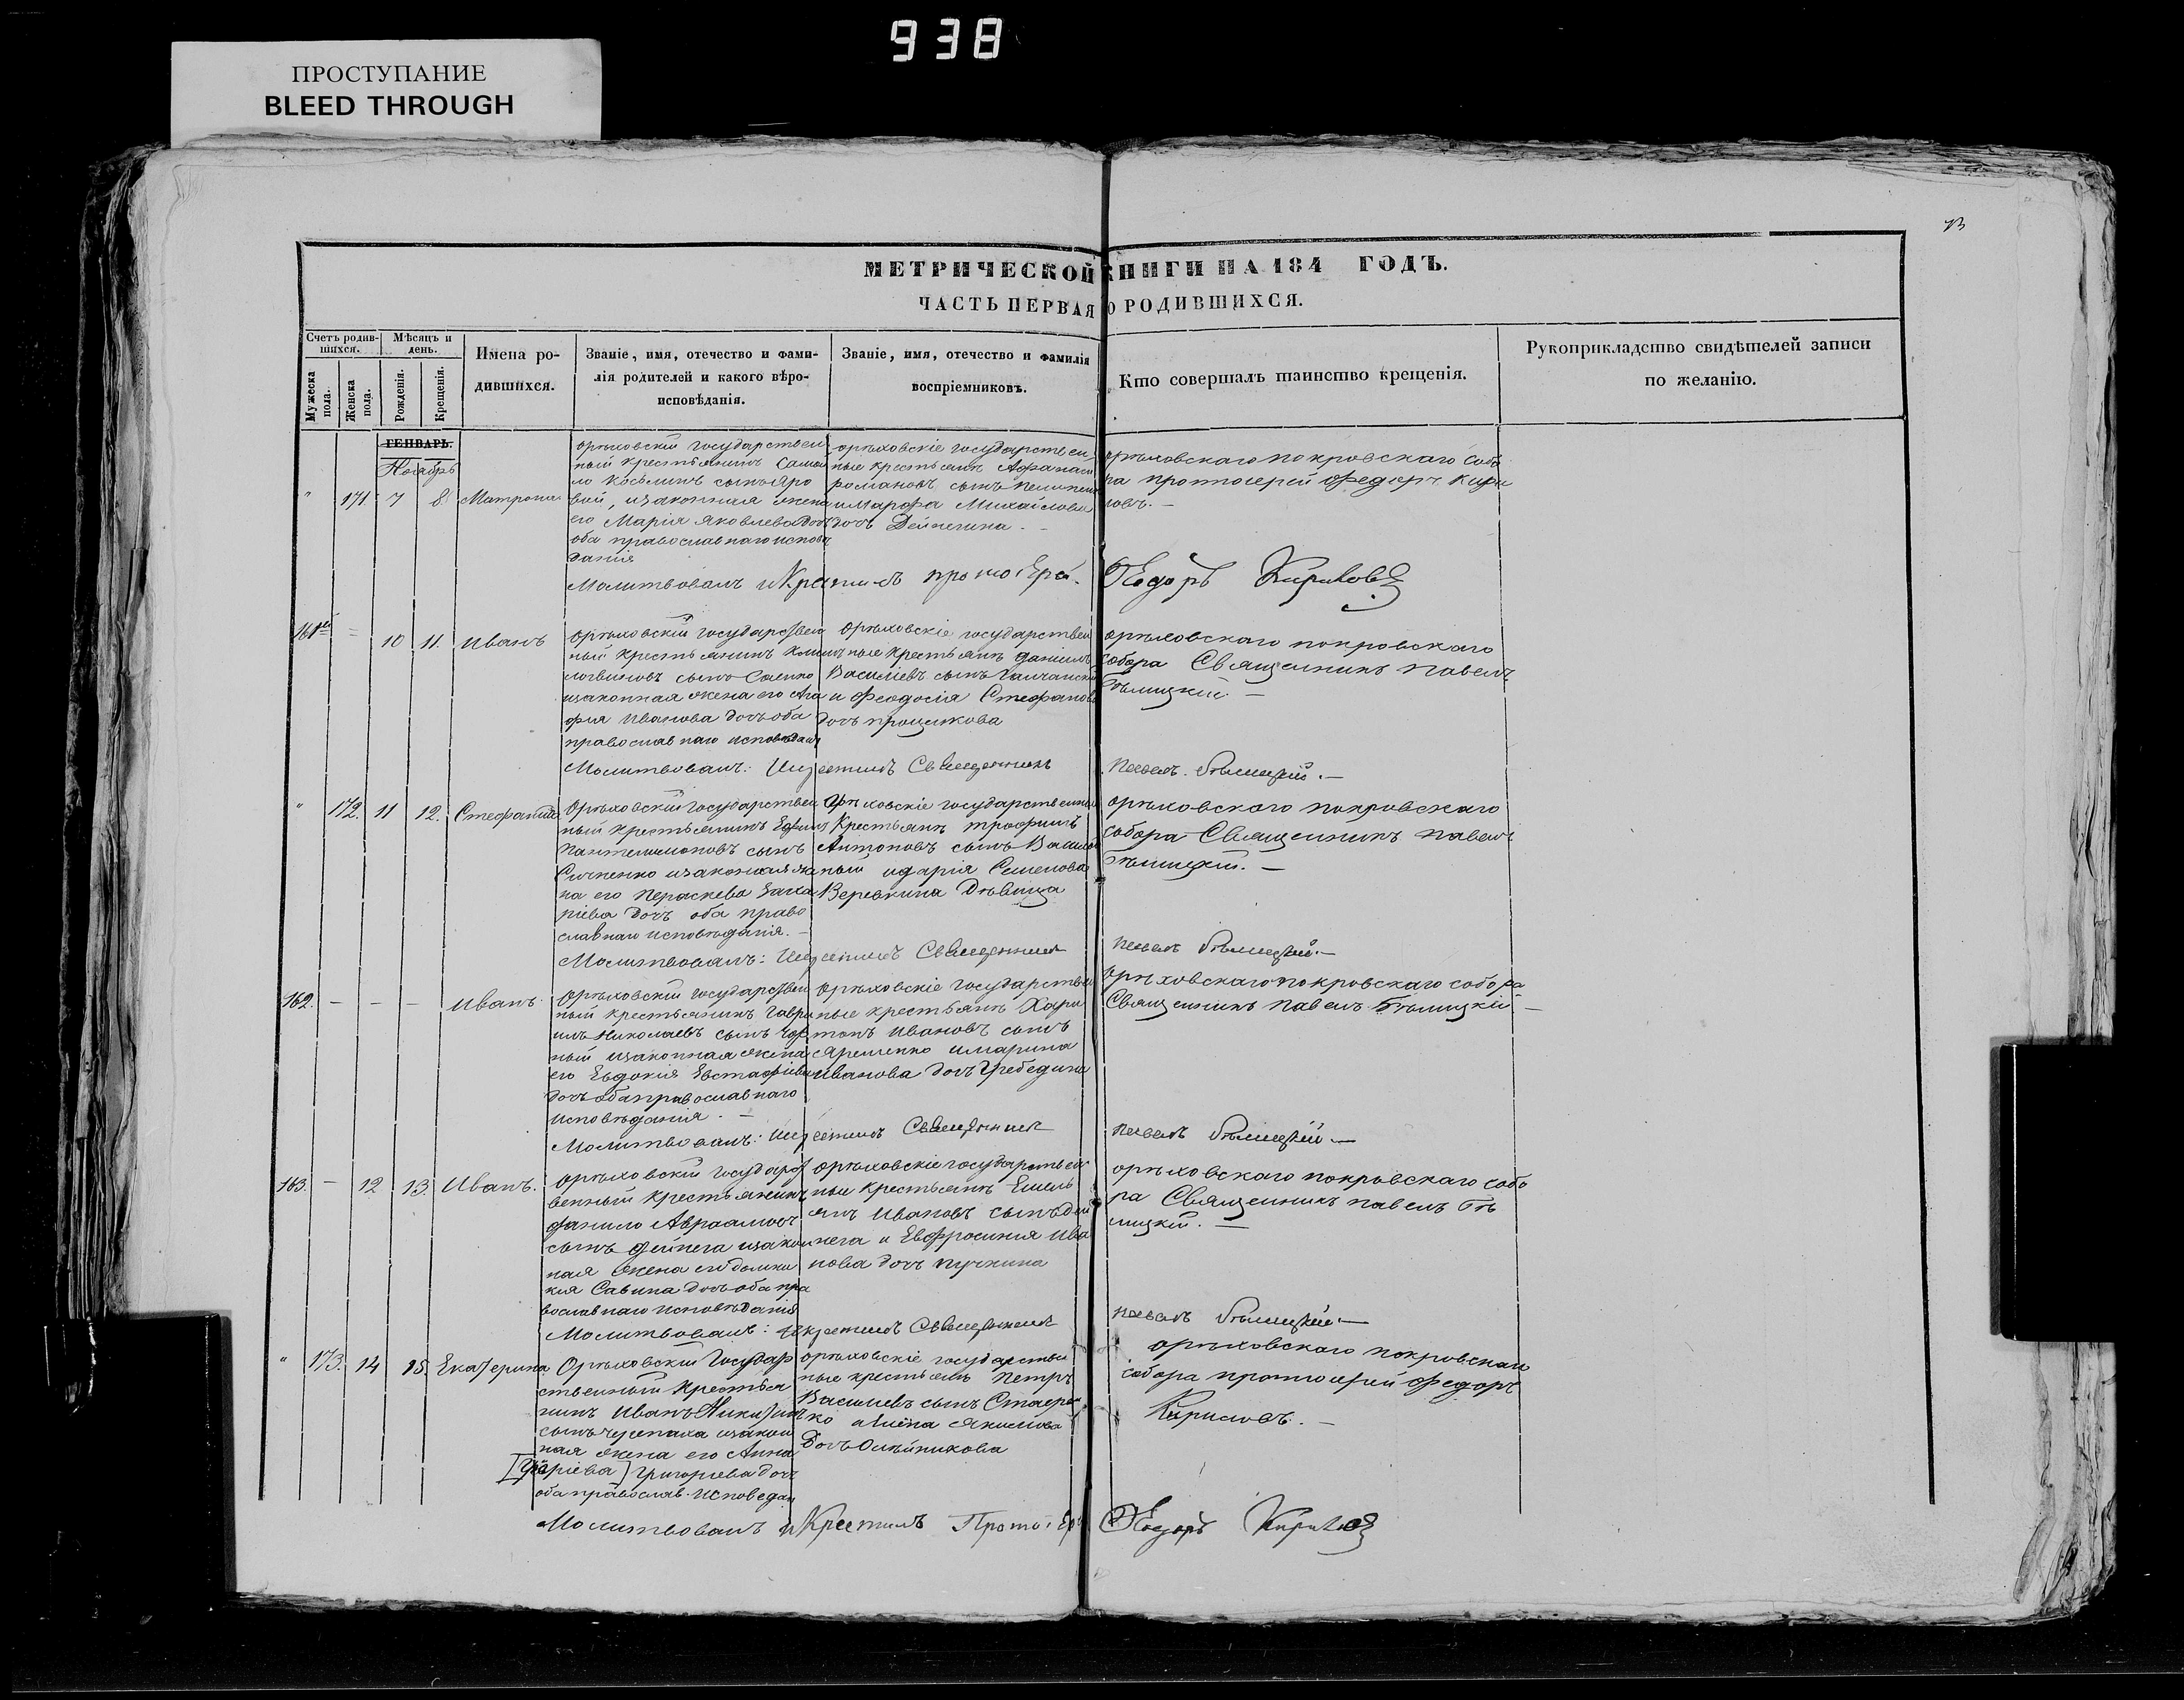 938
ПРОСТУПАНИЕ
BLEED THROUGH
МЕТРИЧЕСКОЙ КНИГИ НА 184 ГОДЪ.
ЧАСТЬ ПЕРВАЯ О РОДИВШИХСЯ.
Счетъ родив-
шихся.
Мужеска пола.
Женска пола.
Мѣсяцъ и
день.
Рожденія.
Крещенія.
Имена ро-
дившихся.
Званіе, имя, отечество и фами-
лія родителей и какого вѣро-
исповѣданія.
Званіе, имя, отечество и фамилія
воспріемниковъ.
Кто совершалъ таинство крещенія.
Рукоприкладство свидѣтелей записи
по желанію.
ГЕНВАРЬ.
Ноябрь
" 171. 7 8 Матрона
орѣховскій государствен
ный крестьянинъ Самои
ло Косьминъ сынъ Яро
вой, изаконная жена
его Марія Яковлева дочь
оба православнаго исповѣ
данія
орѣховскіе государствен
ные крестьянѣ Афанасій
романовъ сынъ
имарфа Михайлова
дочь Дейнегина.
орѣховскаго покровскаго собо
ра протоіерей Федоръ Кири
ловъ.
Молитвовалъ и Крестилъ протоіерей Федоръ Кириловъ
161й = 10 11. Иванъ
Орѣховскій государствен
ный крестьянинъ Климъ
логвиновъ сынъ Саенко
изаконная жена его Ага
фия Иванова дочь оба
православнаго исповѣдан
Орѣховскіе государствен
ные крестьянѣ даніилъ
Василіевъ сынъ
и Феодосія Стефанова
дочь
орѣховскаго покровскаго
собора Священникъ павелъ
Бѣлицкій.
Молитвовалъ: Икрестилъ Священникъ павелъ Бѣлицкій.
" 172. 11 12. Стефанида
Орѣховскій государствен
ный крестьянинъ Ефимъ
пантелимоновъ сынъ
изаконная же
на его Пераскева Заха
ріева дочь оба право
славнаго исповѣданія.
Орѣховскіе государственные
Крестьянѣ трофимъ
Антоновъ сынъ
идарія Семенова
Веревкина Дѣвица
орѣховского покровскаго
собора Священникъ павелъ
Бѣлицкій.
Молитвовалъ: Икрестилъ Священникъ павелъ Бѣлицкій.
162. – – – Иванъ
Орѣховскій государствен
ный крестьянинъ Гаври
илъ Николаевъ сынъ Чор
ный изаконная жена
его Евдокія Евстафіева
дочь оба православнаго
исповѣданія.
Орѣховскіе государствен
ные крестьянѣ Хари
тонъ Ивановъ сынъ
Яременко имарина
Иванова дочь Гребедина
Орѣховскаго покровскаго собора
Священникъ Павелъ Бѣлицкій
Молитвовалъ: Икрестилъ Священникъ павелъ Бѣлицкій.
163. – 12 13. Иванъ.
Орѣховскій государст
венный крестьянинъ
данило Авраамовъ
сынъ дейнега изакон
ная жена его домни
кія Савина дочь оба пра
вославнаго исповѣданія
орѣховскіе государствен
ныи крестьянѣ Емель
янъ Ивановъ сынъ дей
нега и Евфросинія Ива
нова дочь пучкина
орѣховскаго покровскаго собо
ра Священникъ павелъ Бѣ
лицкій.
Молитвовалъ: Икрестилъ Священникъ павелъ Бѣлицкій
" 173. 14 15. Екатерина
Орѣховскій Государ
ственный Крестья
нинъ Иванъ Никитинъ
сынъ черепаха изакон
ная жена его Анна
Григорьева дочь
оба православ. исповедан
орѣховскіе государствен
ные крестьянѣ Петръ
Василіевъ сынъ
Елена Якимова
дочь Олѣйникова
орѣховскаго покровскаго
собора протоіерей федоръ
Кириловъ.
Молитвовалъ и Крестилъ Протоіерей Федоръ Кириловъ